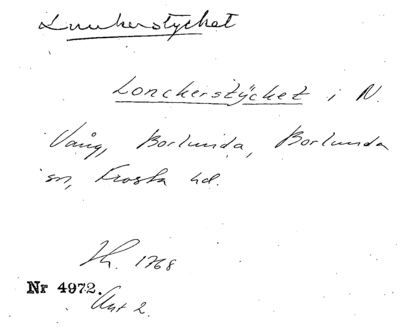 Lunkerstycket
Lonckerstÿcket i N.
Vång, Borlunda, Borlunda
sn, Frosta hd.
Lh. 1768
Nr 4972.
Akt 2.